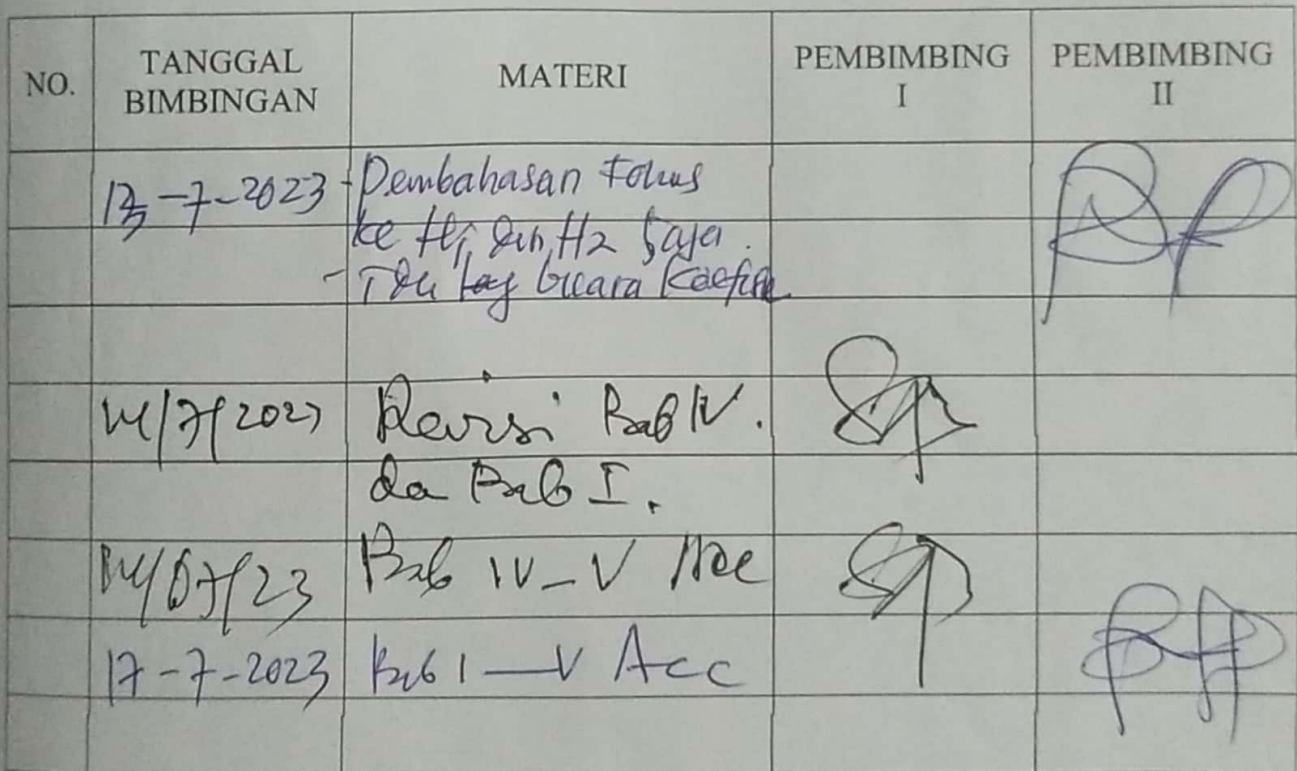 NO.
TANGGAL BIMBINGAN
MATERI
PEMBIMBING I
PEMBIMBING II
13-7-2023 - Pembahasan Fokus
ke H1 dan H2 saja.
- bicara
14/7/2023 Revisi Bab IV.
da Bab I.
14/07/23 Bab IV-V Acc
17-7-2023 Bab I-V Acc